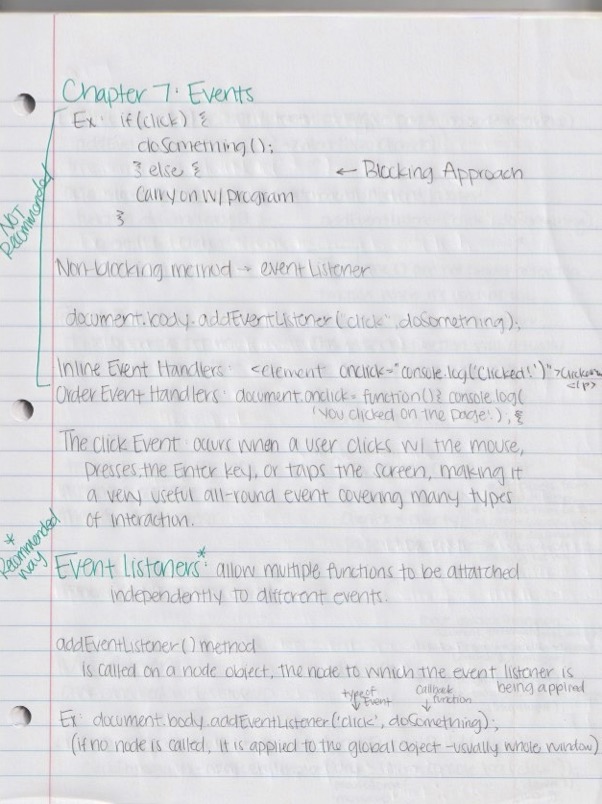 Chapter 7: Events
Ex: if(click) {
doSomething();
} else {
← Blocking Approach
Carry on w/ program
}
NOT
Recommended
Non-blocking method → eventListener
document.body.addEventListener('click', doSomething);
Inline Event Handlers: <element onclick="console.log('Clicked!')">
</p>
Order Event Handlers: document.onclick = function(){ console.log(
'You clicked on the page!'); {
The Click Event: occurs when a user clicks w/ the mouse,
presses the Enter key, or taps the screen, making it
a very useful all-round event covering many types
of interaction.
*
Recommended
way
Event Listeners*: allow multiple functions to be attatched
independently to different events.
addEventListener() method
is called on a node object, the node to which the event listener is
being applied
type of
Event
Callback
function
Ex: document.body.addEventListener('click', doSomething);
(if no node is called, it is applied to the global object - usually whole window)